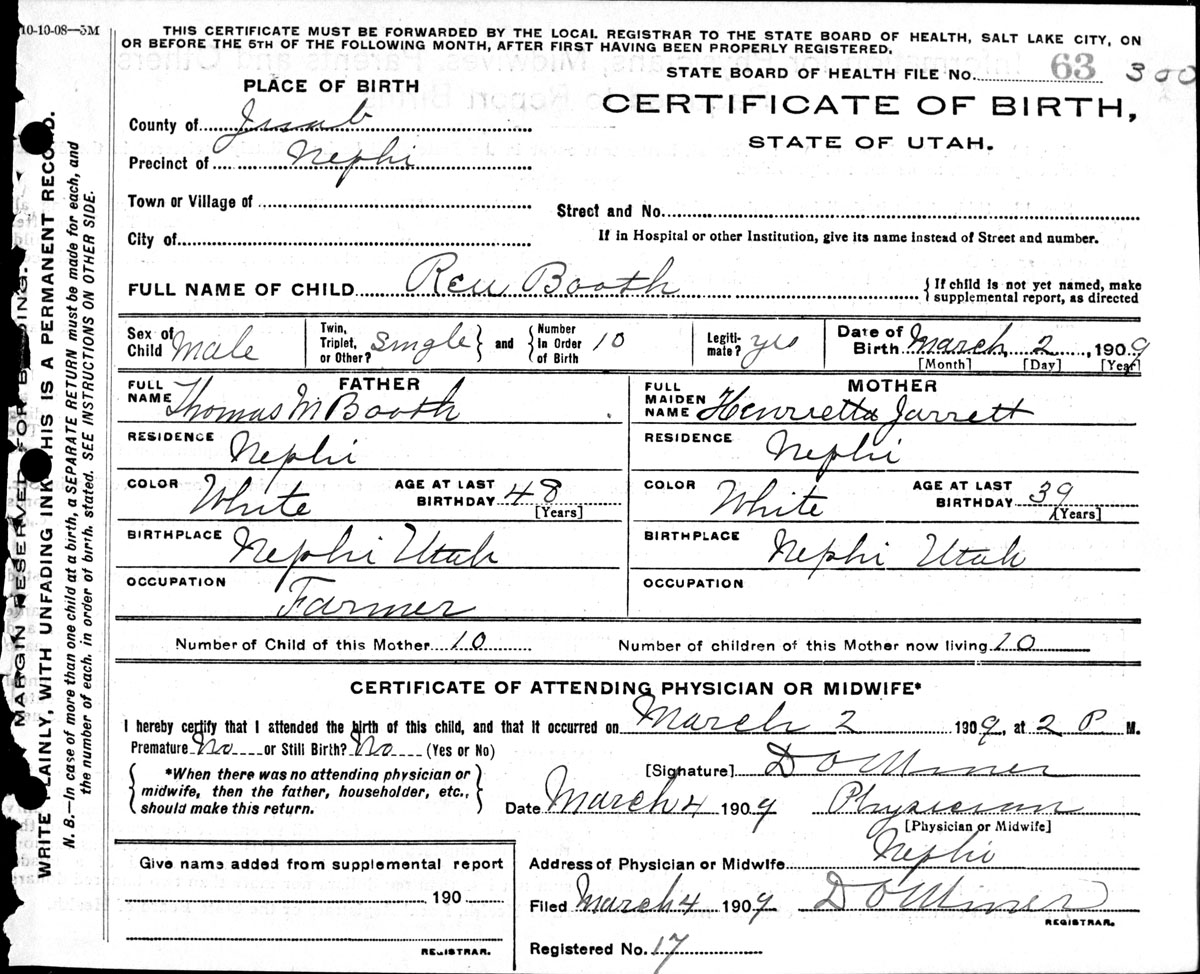 10-10-08—3M
THIS CERTIFICATE MUST BE FORWARDED BY THE LOCAL REGISTRAR TO THE STATE BOARD OF HEALTH, SALT LAKE CITY, ON
OR BEFORE THE 5TH OF THE FOLLOWING MONTH, AFTER FIRST HAVING BEEN PROPERLY REGISTERED.
STATE BOARD OF HEALTH FILE No. 63 300
PLACE OF BIRTH
CERTIFICATE OF BIRTH,
STATE OF UTAH.
County of Juab
Precinct of Nephi
Town or Village of
Street and No.
City of
If in Hospital or other Institution, give its name instead of Street and number.
FULL NAME OF CHILD Reu Booth
{If child is not yet named, make
supplemental report, as directed
Sex of Child Male
Twin, Triplet, or Other? Single } and { Number In Order of Birth 10
Legiti-mate? yes
Date of Birth March 2, 1909
[Month] [Day] [Year]
FATHER
FULL NAME Thomas M Booth
MOTHER
FULL MAIDEN NAME Henrietta Jarrett
RESIDENCE Nephi
RESIDENCE Nephi
COLOR White AGE AT LAST BIRTHDAY 48 [Years]
COLOR White AGE AT LAST BIRTHDAY 39 [Years]
BIRTHPLACE Nephi Utah
BIRTHPLACE Nephi Utah
OCCUPATION Farmer
OCCUPATION
Number of Child of this Mother 10 Number of children of this Mother now living 10
CERTIFICATE OF ATTENDING PHYSICIAN OR MIDWIFE*
I hereby certify that I attended the birth of this child, and that it occurred on March 2 1909, at 2 P. M.
Premature No or Still Birth? No (Yes or No)
{ *When there was no attending physician or
midwife, then the father, householder, etc.,
should make this return. }
[Signature] D O Miner
Date March 4 1909 Physician
[Physician or Midwife]
Give name added from supplemental report
190
REGISTRAR.
Address of Physician or Midwife Nephi
Filed March 4 1909 D O Miner
REGISTRAR.
Registered No. 17
MARGIN RESERVED FOR BINDING.
WRITE PLAINLY, WITH UNFADING INK—THIS IS A PERMANENT RECORD.
N. B.—In case of more than one child at a birth, a SEPARATE RETURN must be made for each, and
the number of each, in order of birth, stated. SEE INSTRUCTIONS ON OTHER SIDE.